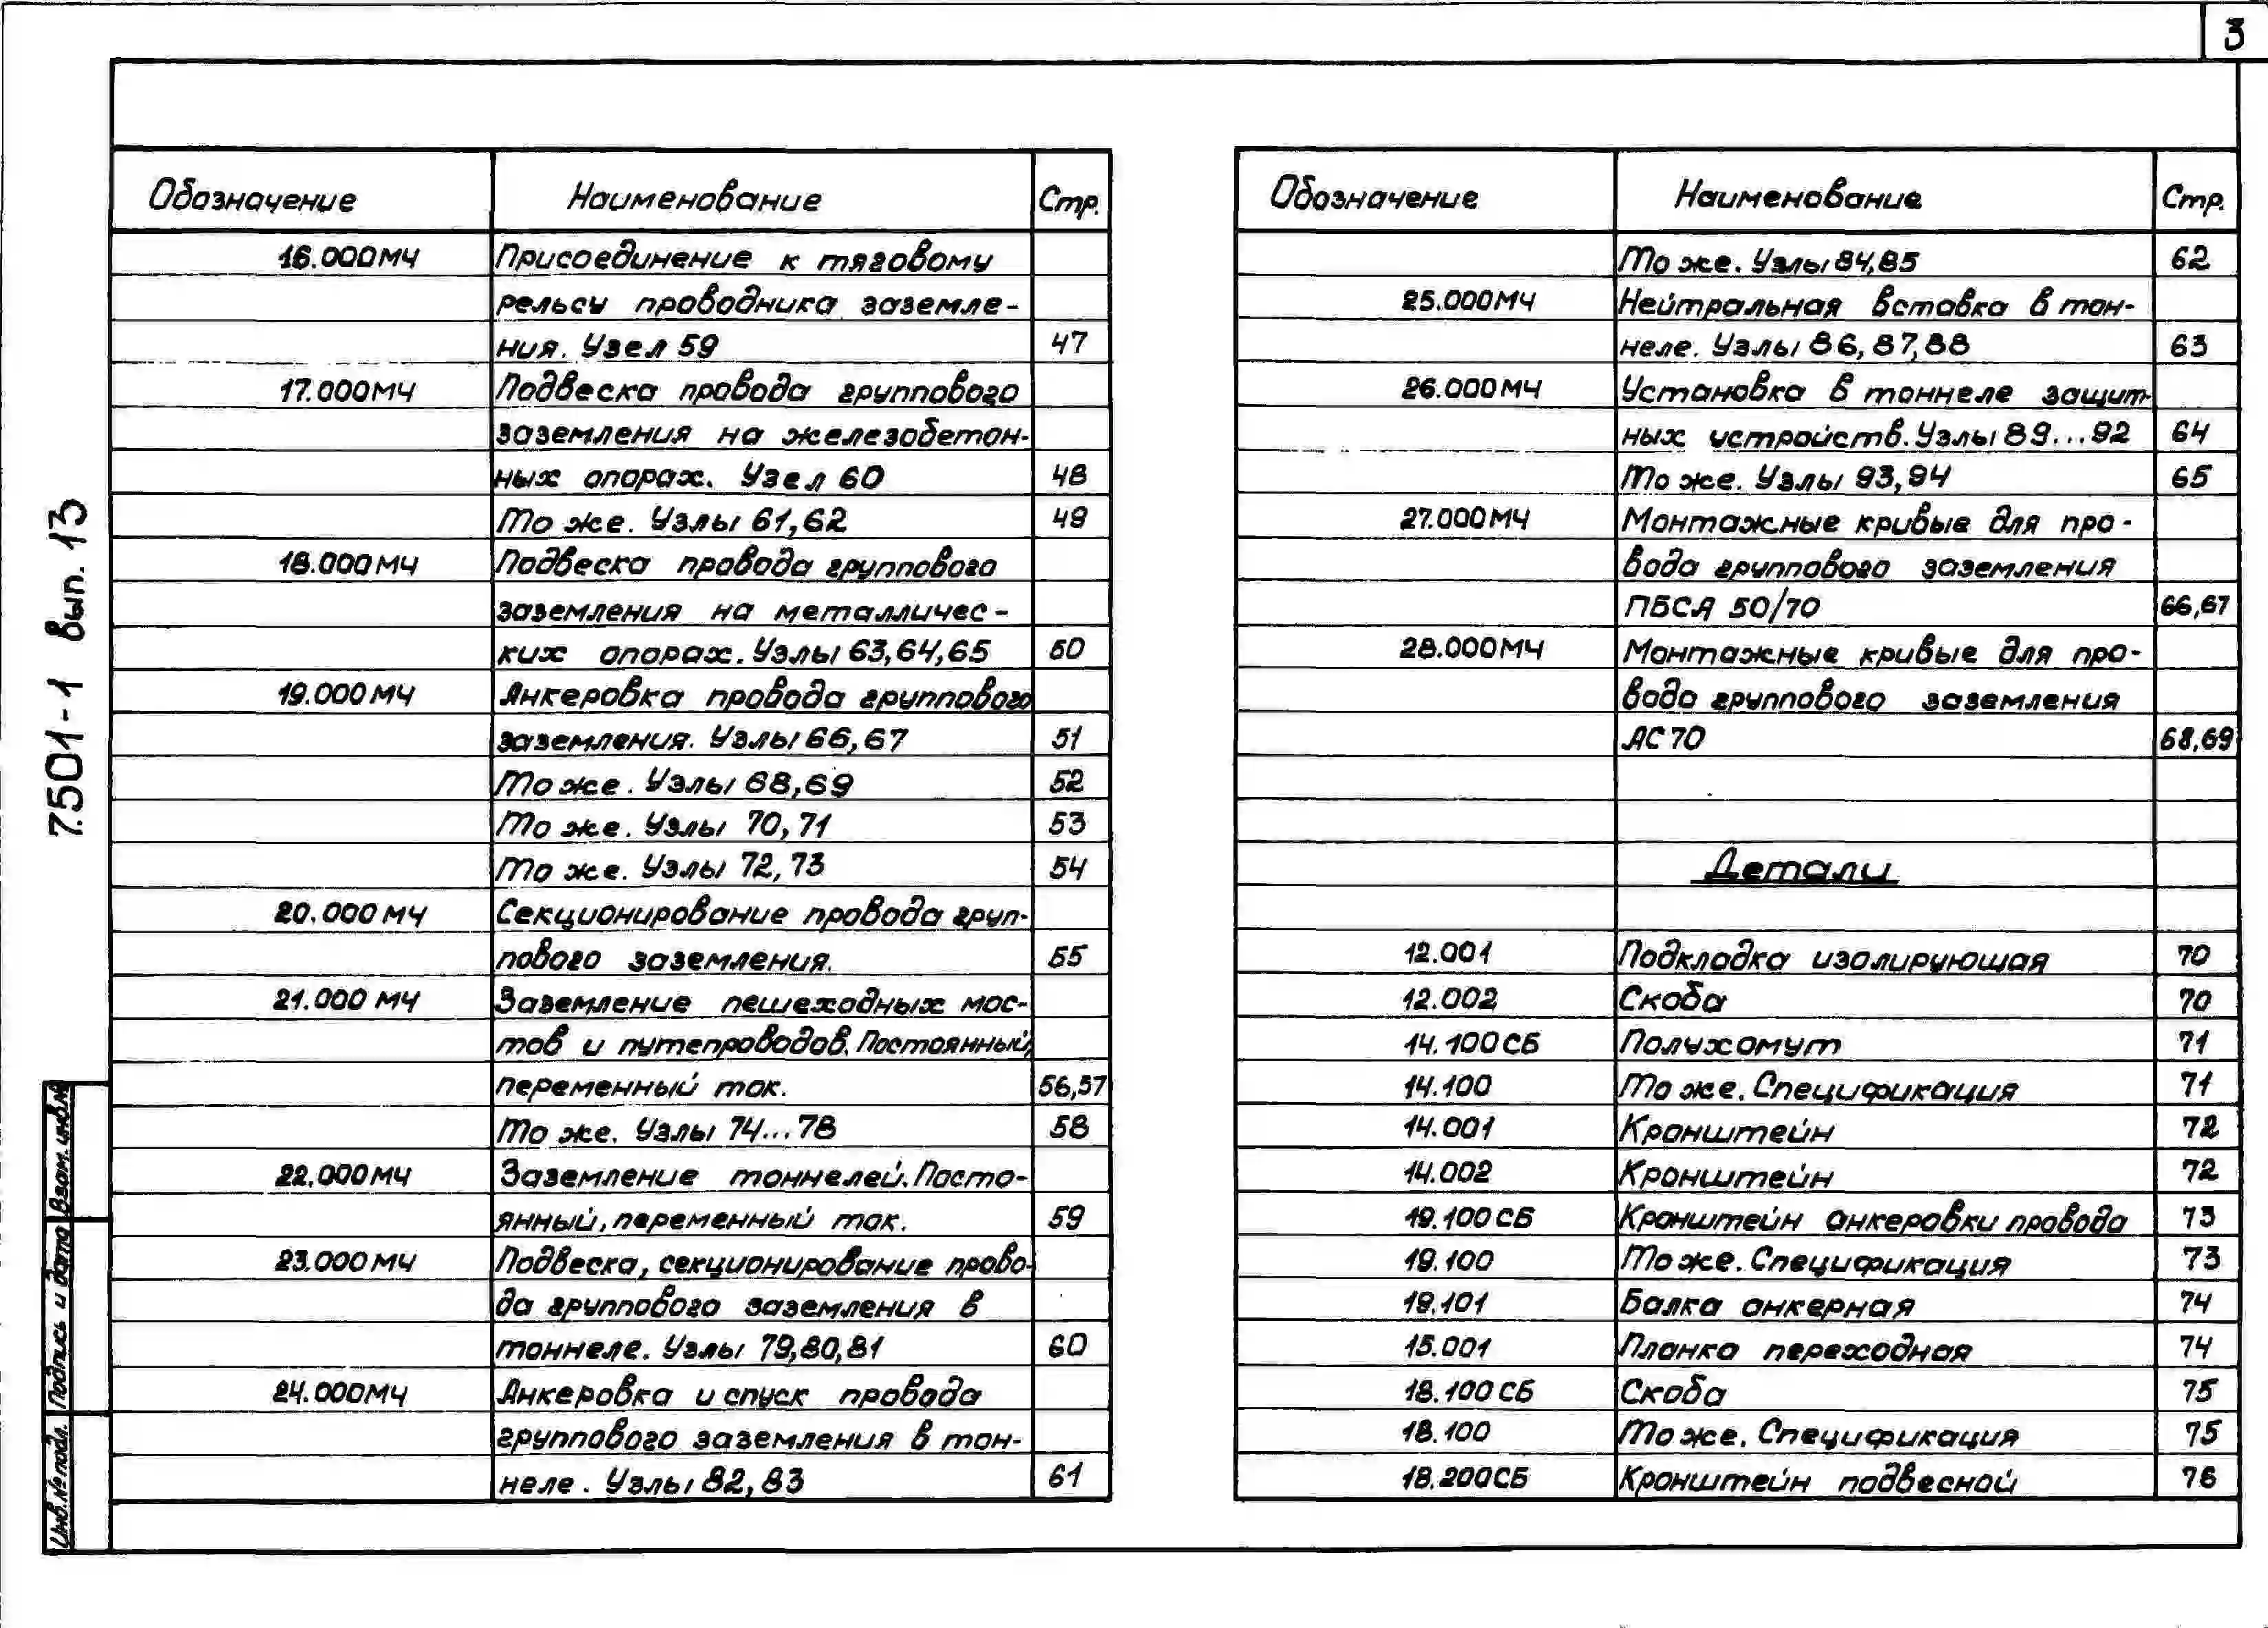 3
Обозначение Наименование Стр.
16.000МЧ Присоединение к тяговому
рельсу проводника заземле-
ния. Узел 59 47
17.000МЧ Подвеска провода группового
заземления на железобетон-
ных опорах. Узел 60 48
То же. Узлы 61,62 49
18.000МЧ Подвеска провода группового
заземления на металличес-
ких опорах. Узлы 63,64,65 50
19.000МЧ Анкеровка провода группового
заземления. Узлы 66,67 51
То же. Узлы 68,69 52
То же. Узлы 70,71 53
То же. Узлы 72,73 54
20.000МЧ Секционирование провода груп-
пового заземления. 55
21.000 МЧ Заземление пешеходных мос-
тов и путепроводов. Постоянный,
переменный ток. 56,57
То же. Узлы 74...78 58
22.000МЧ Заземление тоннелей. Посто-
янный, переменный ток. 59
23.000МЧ Подвеска, секционирование прово-
да группового заземления в
тоннеле. Узлы 79,80,81 60
24.000МЧ Анкеровка и спуск провода
группового заземления в тон-
неле. Узлы 82,83 61
Обозначение Наименование Стр.
То же. Узлы 84,85 62
25.000МЧ Нейтральная вставка в тон-
неле. Узлы 86,87,88 63
26.000МЧ Установка в тоннеле защит-
ных устройств. Узлы 89...92 64
То же. Узлы 93,94 65
27.000МЧ Монтажные кривые для про-
вода группового заземления
ПБСА 50/70 66,67
28.000МЧ Монтажные кривые для про-
вода группового заземления
АС 70 68,69
Детали
12.001 Подкладка изолирующая 70
12.002 Скоба 70
14.100СБ Полухомут 71
14.100 То же. Спецификация 71
14.001 Кронштейн 72
14.002 Кронштейн 72
19.100СБ Кронштейн анкеровки провода 73
19.100 То же. Спецификация 73
19.101 Балка анкерная 74
15.001 Планка переходная 74
18.100СБ Скоба 75
18.100 То же. Спецификация 75
18.200СБ Кронштейн подвесной 76
7.501-1 вып. 13
Взам. инв.№
Подпись и дата
Инв.№ подл.